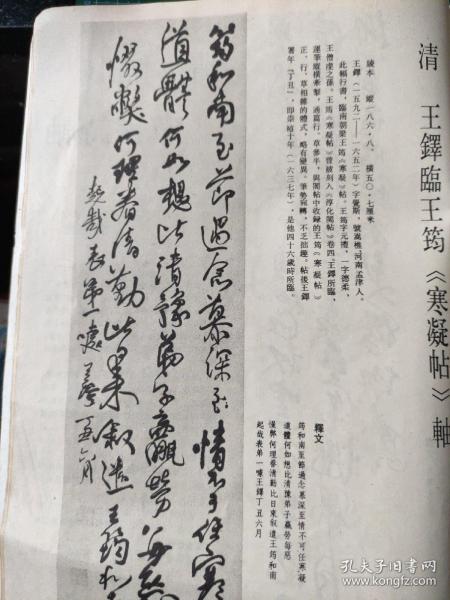 清　王鐸臨王筠《寒凝帖》軸
綾本　縱一八六·八、橫五〇·七厘米
王鐸（一五九二——一六五二年）字覺斯，號嵩樵，河南孟津人。
此幅行書，臨南朝梁王筠《寒凝》帖。王筠字元禮，一字德柔，
王僧虔之孫。王筠《寒凝帖》曾被刻入《淳化閣帖》卷四，王鐸所臨，
正、行、草相雜的體式，略有變異。筆勢宛轉，不乏拙趣。帖後王鐸
署年「丁丑」，即崇禎十年（一六三七年），是他四十六歲時所臨。
釋文
筠和南至節過念慕深至情不可任寒凝
道體何如想比清豫弟子羸勞每惡
惙弊何理眷清勤比日來敘遣王筠和南
起哉表弟一噱王鐸丁丑六月
筠和南至節過念慕深至情不可任寒
道體何如想比清豫弟子羸勞每惡
惙弊何理眷清勤比日來敘遣王筠和
起哉表弟一噱王鐸丁丑六月
孔夫子旧书网